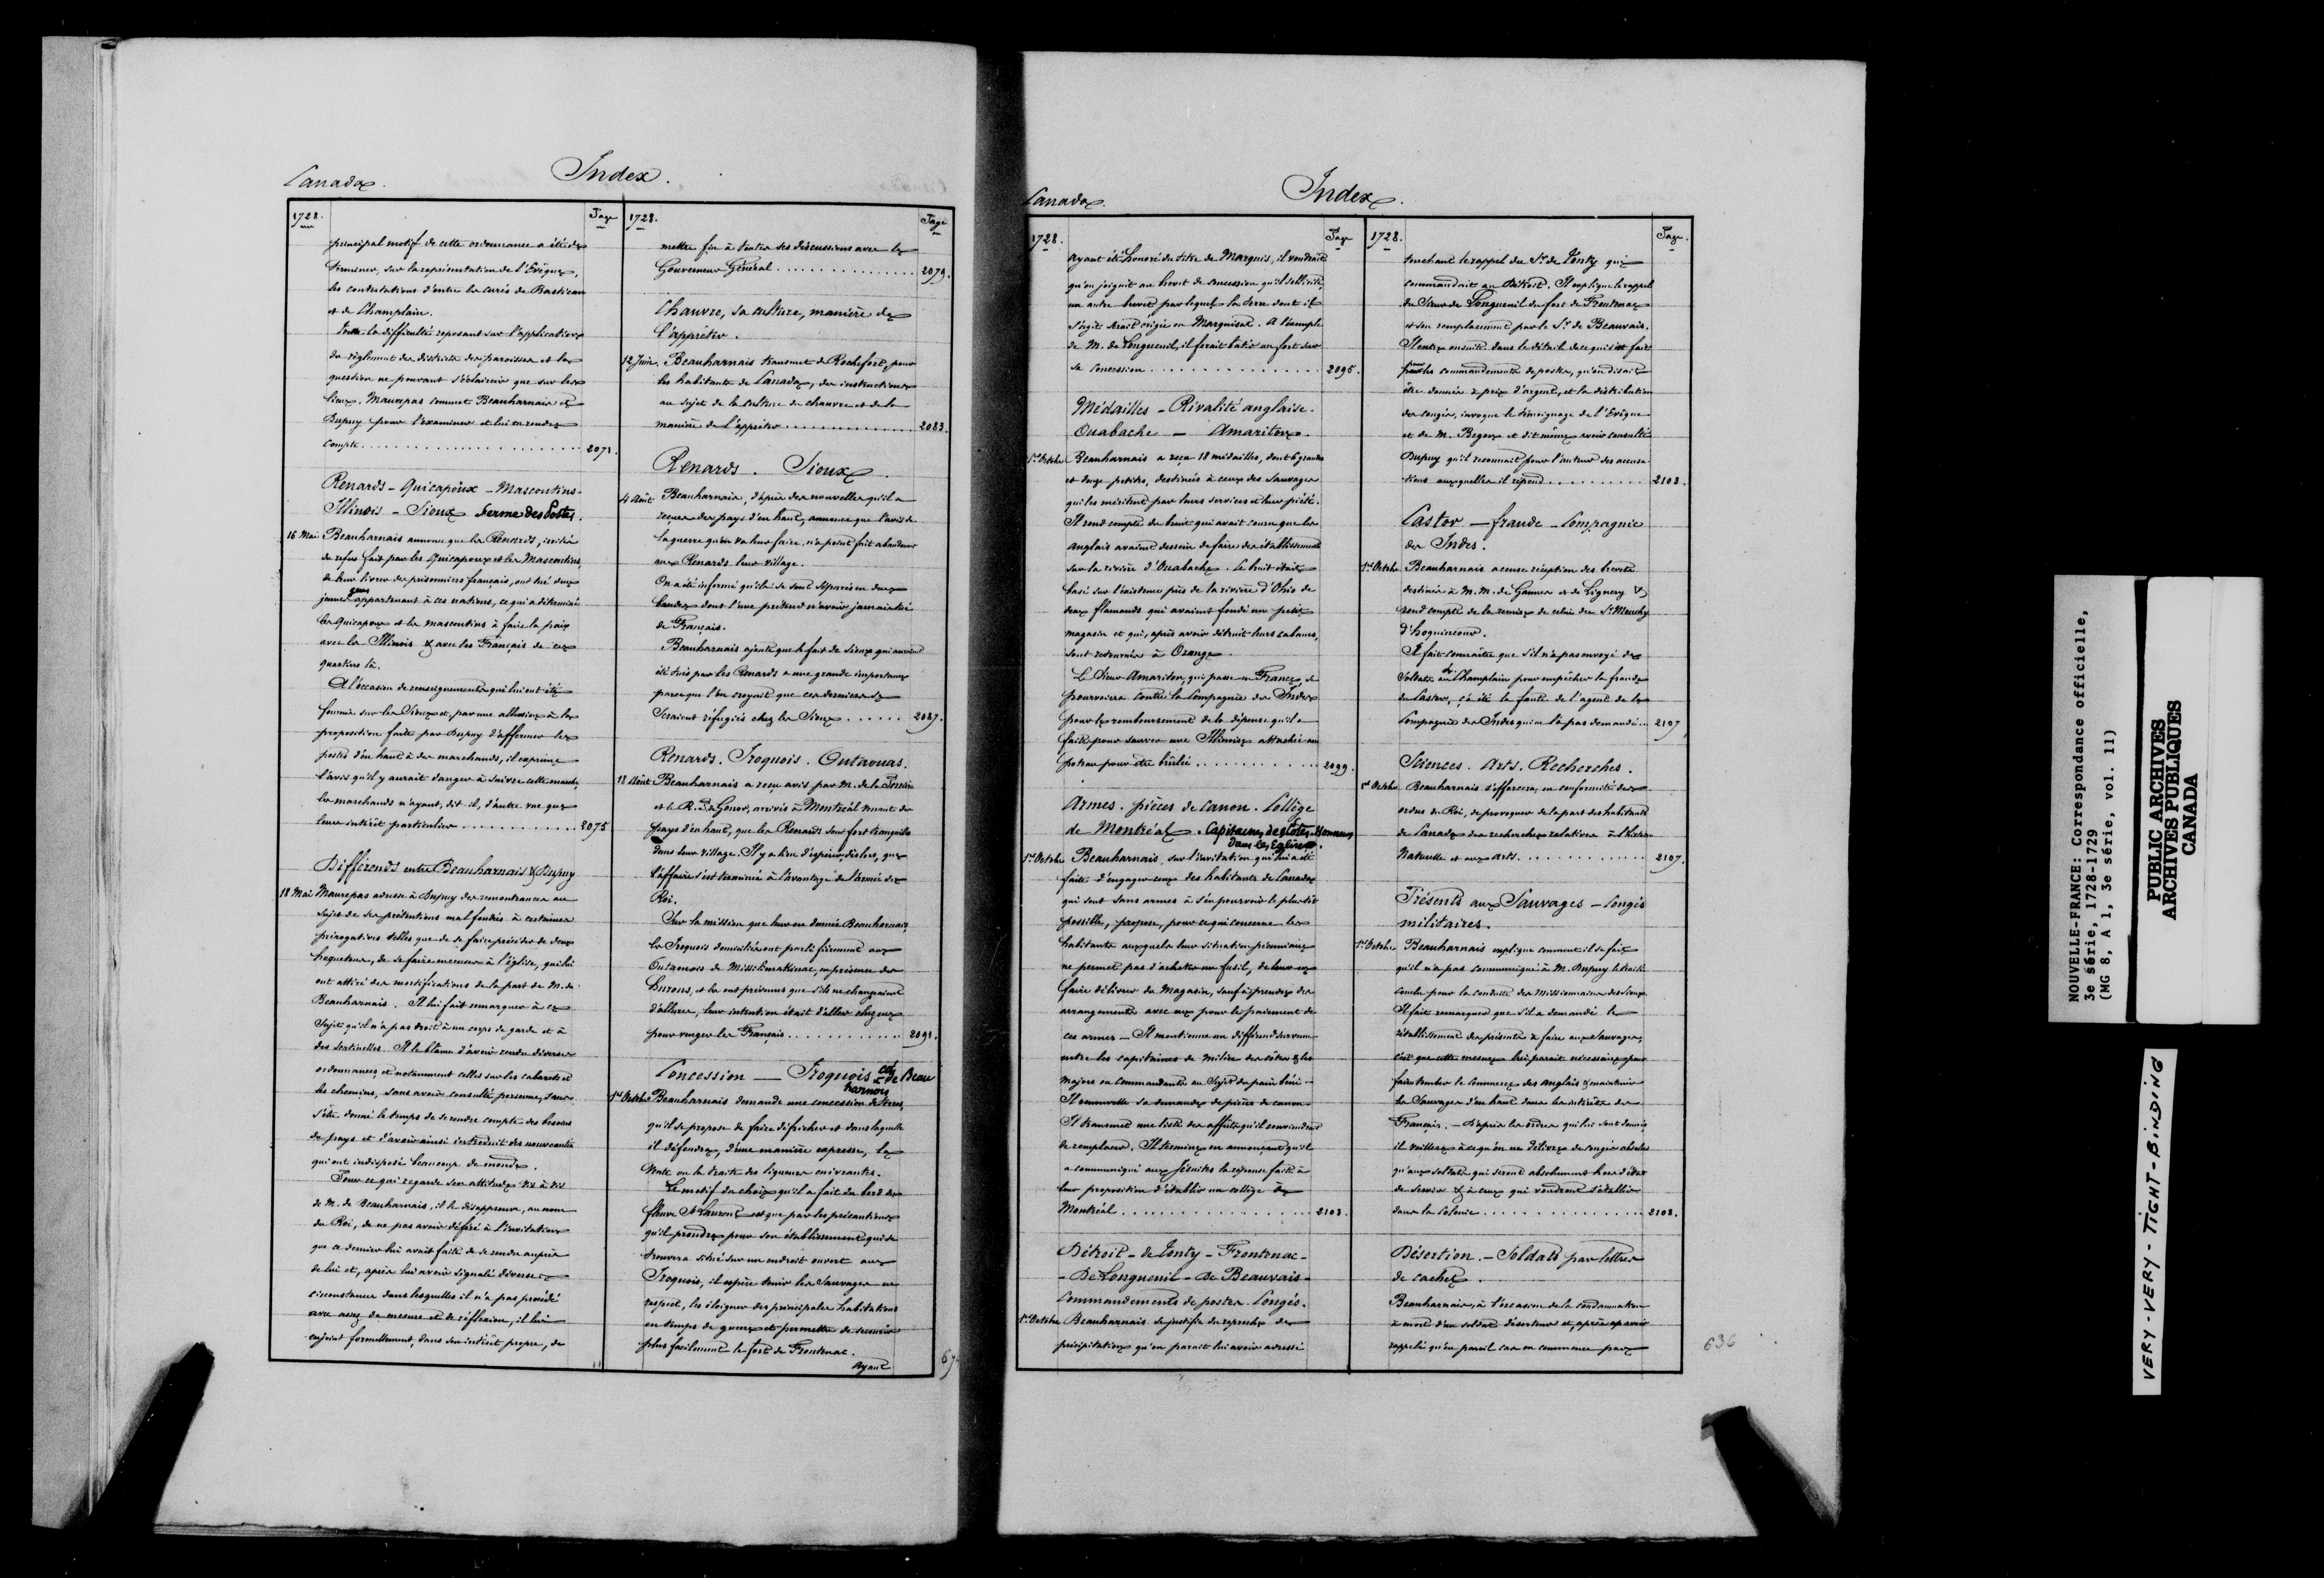 Canada.
Index.
1728.
Page
principal motif de cette ordonnance a été de
terminer, sur la représentation de l'Evêque,
les contestations d'entre les curés de Bastican
et de Champlain.
Toute la difficulté reposant sur l'application
du règlement des districts des paroisses et la
question ne pouvant s'éclaircir que sur les
lieux. Maurepas commet Beauharnais et
Dupuy pour l'examiner et lui en rendre
compte 2071.
Renards - Quicapoux - Mascontins -
Illinois - Sioux ferme des Postes.
16 Mai Beauharnais annonce que les Renards, irrités
du refus fait par les Quicapoux et les Mascontins,
de leur livrer des prisonniers français, ont tué deux
jeunes gens appartenant à ces nations, ce qui a déterminé
les Quicapoux et les mascontins à faire la paix
avec les Illinois & avec les Français de ces
quartiers là.
A l'occasion de renseignements qui lui ont été
fournis sur les Sioux et par une allusion à la
proposition faite par Dupuy d'affermer les
postes d'en haut à des marchands, il exprime
l'avis qu'il y aurait danger à suivre cette marche,
les marchands n'ayant, dit-il, d'autre vue que
leur intérêt particulier 2075
Différends entre Beauharnais & Dupuy
18 Mai Maurepas adresse à Dupuy des remontrances au
sujet de ses prétentions mal fondées à certaines
prérogatives telles que de se faire précéder de deux
hoquetons, de se faire encenser à l'église, qui lui
ont attiré des mortifications de la part de M. de
Beauharnais. Il lui fait remarquer à ce
sujet qu'il n'a pas droit à un corps de garde et à
des sentinelles. Il le blâme d'avoir rendu diverses
ordonnances et notamment celles sur les cabarets et
les chemins, sans avoir consulté personne, sans
s'être donné le temps de se rendre compte des besoins
du pays et d'avoir ainsi introduit des nouveautés
qui ont indisposé beaucoup de monde.
Pour ce qui regarde son attitude vis à vis
de M. de Beauharnais, il le désapprouve, au nom
du Roi, de ne pas avoir déféré à l'invitation
que ce dernier lui avait faite de se rendre auprès
de lui et, après lui avoir signalé diverses
circonstances dans lesquelles il n'a pas procédé
avec assez de mesure et de réflexion, il lui
enjoint formellement, dans son intérêt propre, de
1728.
Page
mettre fin à toutes ses discussions avec le
Gouverneur Général 2079.
Chanvre, sa culture, manière de
l'apprêter.
12 Juin. Beauharnais transmet de Rochefort, pour
les habitants de Canada, des instructions
au sujet de la culture du chanvre et de la
manière de l'apprêter 2083.
Renards. Sioux
4 Août Beauharnais, d'après des nouvelles qu'il a
reçues des pays d'en haut, annonce que l'avis de
la guerre qu'on va leur faire, n'a point fait abandonner
aux Renards leur village.
On a été informé qu'ils se sont séparés en deux
bandes dont l'une prétend n'avoir jamais tué
de Français.
Beauharnais ajoute que le fait de Sioux qui auraient
été tués par les Renards a une grande importance
parce que l'on croyait que ces derniers se
seraient réfugiés chez les Sioux 2087.
Renards. Iroquois. Outaouas.
18 Août Beauharnais a reçu avis par M. de la Perrière
et le R. P. de Gonor, arrivés à Montréal venant des
pays d'en haut, que les Renards sont fort tranquilles
dans leur village. Il y a lieu d'espérer, dès lors, que
l'affaire s'est terminée à l'avantage de l'armée du
Roi.
Sur la mission que leur en donne Beauharnais
les Iroquois domiciliés ont parlé fièrement aux
Outaouois de Missilimakinac, en présence des
Hurons, et les ont prévenus que s'ils ne changeaient
d'allures, leur intention était d'aller chez eux
pour venger les Français 2091.
Concession — Iroquois
de Beau
harnois
1er Octobre Beauharnais demande une concession de terres,
qu'il se propose de faire défricher et dans laquelle
il défendra, d'une manière expresse, la
vente ou la traite des liqueurs enivrantes.
Le motif du choix qu'il a fait du bord du
fleuve St Laurent est que par les précautions
qu'il prendra pour son établissement qui se
trouvera situé sur un endroit ouvert aux
Iroquois, il espère tenir les Sauvages en
respect, les éloigner des principales habitations
en temps de guerre et permettre de secourir
plus facilement le fort de Frontenac.
Ayant
Canada.
Index.
1728.
Page
Ayant été honoré du titre de Marquis, il voudrait
qu'on joignit au brevet de concession qu'il sollicite,
un autre brevet par lequel la terre dont il
s'agit serait érigée en Marquisat. A l'exemple
de M. de Longueuil, il ferait bâtir un fort sur
sa concession 2095.
Médailles - Rivalité anglaise.
Ouabache — Amariton.
1er Octobre Beauharnais a reçu 18 médailles, dont 6 grandes
et douze petites, destinées à ceux des Sauvages
qui les méritent par leurs services et leur piété.
Il rend compte du bruit qui avait couru que les
anglais avaient dessein de faire des établissements
sur la rivière d'Ouabache. Ce bruit était
basé sur l'existence près de la rivière d'Ohio de
deux flamands qui avaient fondé un petit
magasin et qui, après avoir détruit leurs cabanes,
sont retournés à Orange.
Le Sieur Amariton, qui passe en France, se
pourvoira contre la Compagnie des Indes
pour le remboursement de la dépense qu'il a
faite pour sauver une Illinoise attachée au
poteau pour être brûlée 2099.
Armes. pièces de Canon. Collège
de Montréal. Capitaines des Côtes, Honneurs
dans les Eglises.
1er Octobre Beauharnais, sur l'invitation qui lui a été
faite d'engager ceux des habitants de Canada
qui sont sans armes à s'en pourvoir le plus tôt
possible, propose, pour ce qui concerne les
habitants auxquels leur situation pécuniaire
ne permet pas d'acheter un fusil, de leur en
faire délivrer du Magasin, sauf à prendre des
arrangements avec eux pour le paiement de
ces armes — Il mentionne un différend survenu
entre les capitaines de milice des côtes & les
majors ou commandants au sujet du pain béni -
Il renouvelle sa demande de pièces de canon
Il transmet une liste des affûts qu'il conviendrait
de remplacer. Il termine en annonçant qu'il
a communiqué aux Jésuites la réponse faite à
leur proposition d'établir un collège à
Montréal 2103.
Détroit - de Tonty - Frontenac -
- De Longueuil - De Beauvais -
Commandements de postes. Congés.
1er Octobre Beauharnais se justifie du reproche de
précipitation qu'on parait lui avoir adressé
1728.
Page.
touchant le rappel du Sr. de Tonty qui
commandait au Détroit. Il explique le rappel
du Sieur de Longueuil du fort de Frontenac
et son remplacement par le Sr. de Beauvais.
Il entre ensuite dans le détail de ce qui s'est fait
pour les commandements de postes, qu'on disait
être donnés à prix d'argent, et la distribution
des congés, invoque le témoignage de l'Evêque
et de M. Begon et dit même avoir consulté
Dupuy qu'il reconnait pour l'auteur des accusa-
tions auxquelles il répond 2103.
Castor — fraude - Compagnie
des Indes.
1er Octobre Beauharnais accuse réception des brevets
destinés à M. M. de Gannes et de Lignery &
rend compte de la remise de celui du Sr. Mouchy
d'hoquincour.
Il fait connaître que s'il n'a pas envoyé de
Soldats au Champlain pour empêcher la fraude
du Castor, ç'a été la faute de l'agent de la
Compagnie des Indes qui ne l'a pas demandé 2107
Sciences. Arts. Recherches.
1er Octobre Beauharnais s'efforcera, en conformité des
ordres du Roi, de provoquer de la part des habitants
de Canada des recherches relatives à l'histoire
Naturelle et aux arts 2107.
Présents aux Sauvages - Congés
militaires.
1er Octobre Beauharnais explique comment il se fait
qu'il n'a pas communiqué à M. Dupuy le traité
conclu pour la conduite des Missionnaires des Sioux.
Il fait remarquer que s'il a demandé le
rétablissement des présents à faire aux Sauvages,
c'est que cette mesure lui parait nécessaire pour
faire tomber le Commerce des Anglais & maintenir
les Sauvages d'en haut dans les intérêts des
Français. — D'après les ordres qui lui sont donnés,
il veillera à ce qu'on ne délivre de congés absolus
qu'aux soldats qui seront absolument hors d'état
de servir & à ceux qui voudront s'établir
dans la Colonie 2108.
Désertion. - Soldats par lettres
de cachet.
Beauharnais, à l'occasion de la condamnation
à mort d'un soldat déserteur et, après avoir
rappelé qu'en pareil cas on commence par
636
NOUVELLE-FRANCE: Correspondance officielle,
3e série, 1728-1729
(MG 8, A 1, 3e série, vol. 11)
PUBLIC ARCHIVES
ARCHIVES PUBLIQUES
CANADA
VERY-VERY-TIGHT-BINDING